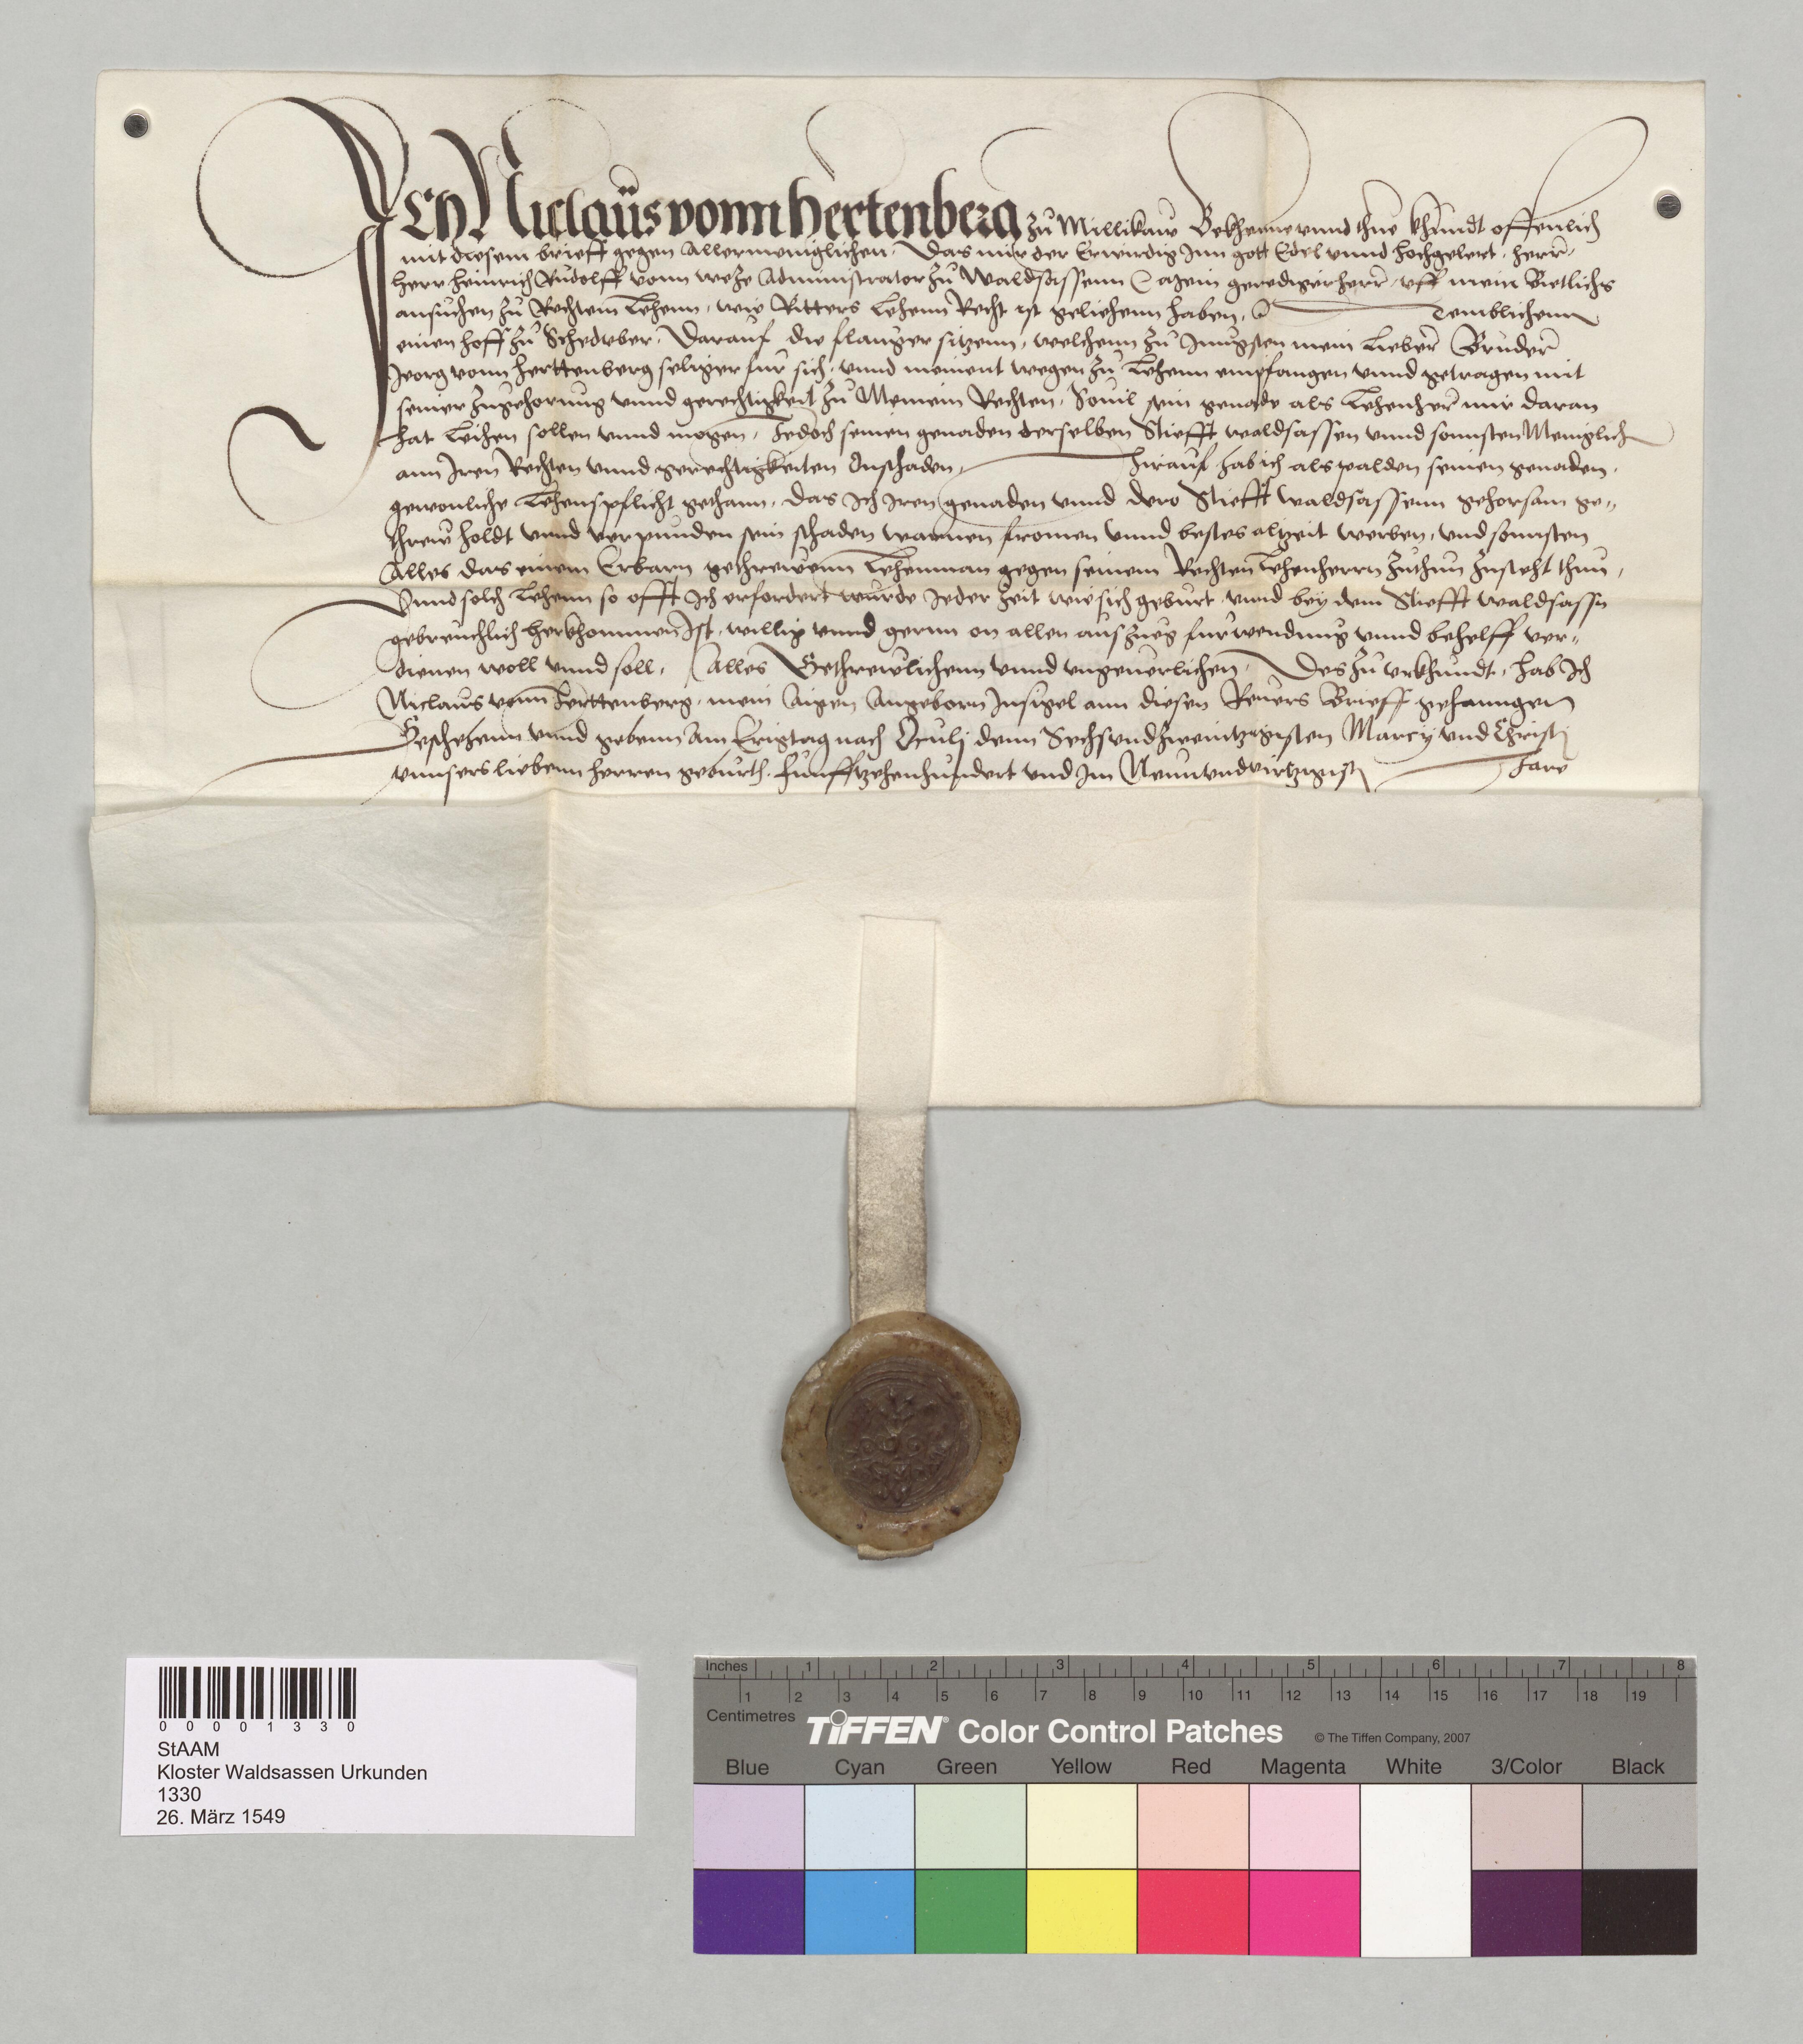 Ich Niclaus vonn Hertenberg zu Millikaw Bekhenne vnnd thue khundt offenlich
mit diesem brieff gegen Allermeniglichen, Das mir der Erwirdig Inn gott Edel vnnd hochgelert, herr,
herr Heinrich Rudolff vonn Weze Administrator zu Waldsassenn mein genediger herr, vff mein Bietlichs
ansuchen zu Rechtem Lehenn, wie Ritters Lehenn Recht ist geliehenn haben, Nemblichenn
einen hoff zu Schedwer, Darauf die flauger sitzenn, welchenn zu Jungsten mein Lieber Bruder
Jeorg vonn Herttenberg seliger fur sich, vnnd meinent wegen zu Lehenn empfangen vnnd getragen mit
seiner Zugehorung vnnd gerechtigkeit zu Meinem Rechten, Souil sein genade als Lehenherr mir daran
hat Leihen sollen vnnd mogen, Jedoch seinen genaden derselben Stiefft Waldsassen vnnd sonnsten Meniglich
ann Iren Rechten vnnd gerechtigkeiten Onschaden, Hirauf hab ich als palden seinen genaden,
gewonliche Lehenspflicht gethann, das Ich Iren genaden vnnd dero Stiefft Waldsassenn gehorsam ge-
threw holdt vnnd verpunden sein schaden warnen fromen vnnd bestes altzeit werben, vnd sonnsten
Alles das einem Erbarn gethrewenn Lehenman gegen seinem Rechten Lehenherrn zuthun zusteht thun,
Vnnd solch Lehenn so offt Ich erfordert wurde Jeder Zeit wie sich geburt vnnd bey dem Stiefft Waldsassn
gebreuchlich herkhommen Ist, willig vnnd gernn on allen auszueg furwendung vnnd behelff ver-
dienen woll vnnd soll, Alles Gethrewlichenn vnnd vngeuerlichen, Des zu vrkhundt, hab Ich
Niclaus vonn Herttenberg, mein Aigen Angeborn Insigel ann diesen Reuers Brieff gehanngen
Geschehenn vnnd gebenn Am Erigtag nach Oculj denn Sechsvndzweintzigisten Marcy vnd Christj
vnnsers liebenn herren geburth, Funfftzehenhundert vnd Im Neunvndvirtzigist Jare
0 0 0 0 1 3 3 0
StAAM
Kloster Waldsassen Urkunden
1330
26. März 1549
Inches 1 2 3 4 5 6 7 8
1 2 3 4 5 6 7 8 9 10 11 12 13 14 15 16 17 18 19
Centimetres
TIFFEN® Color Control Patches © The Tiffen Company, 2007
Blue Cyan Green Yellow Red Magenta White 3/Color Black